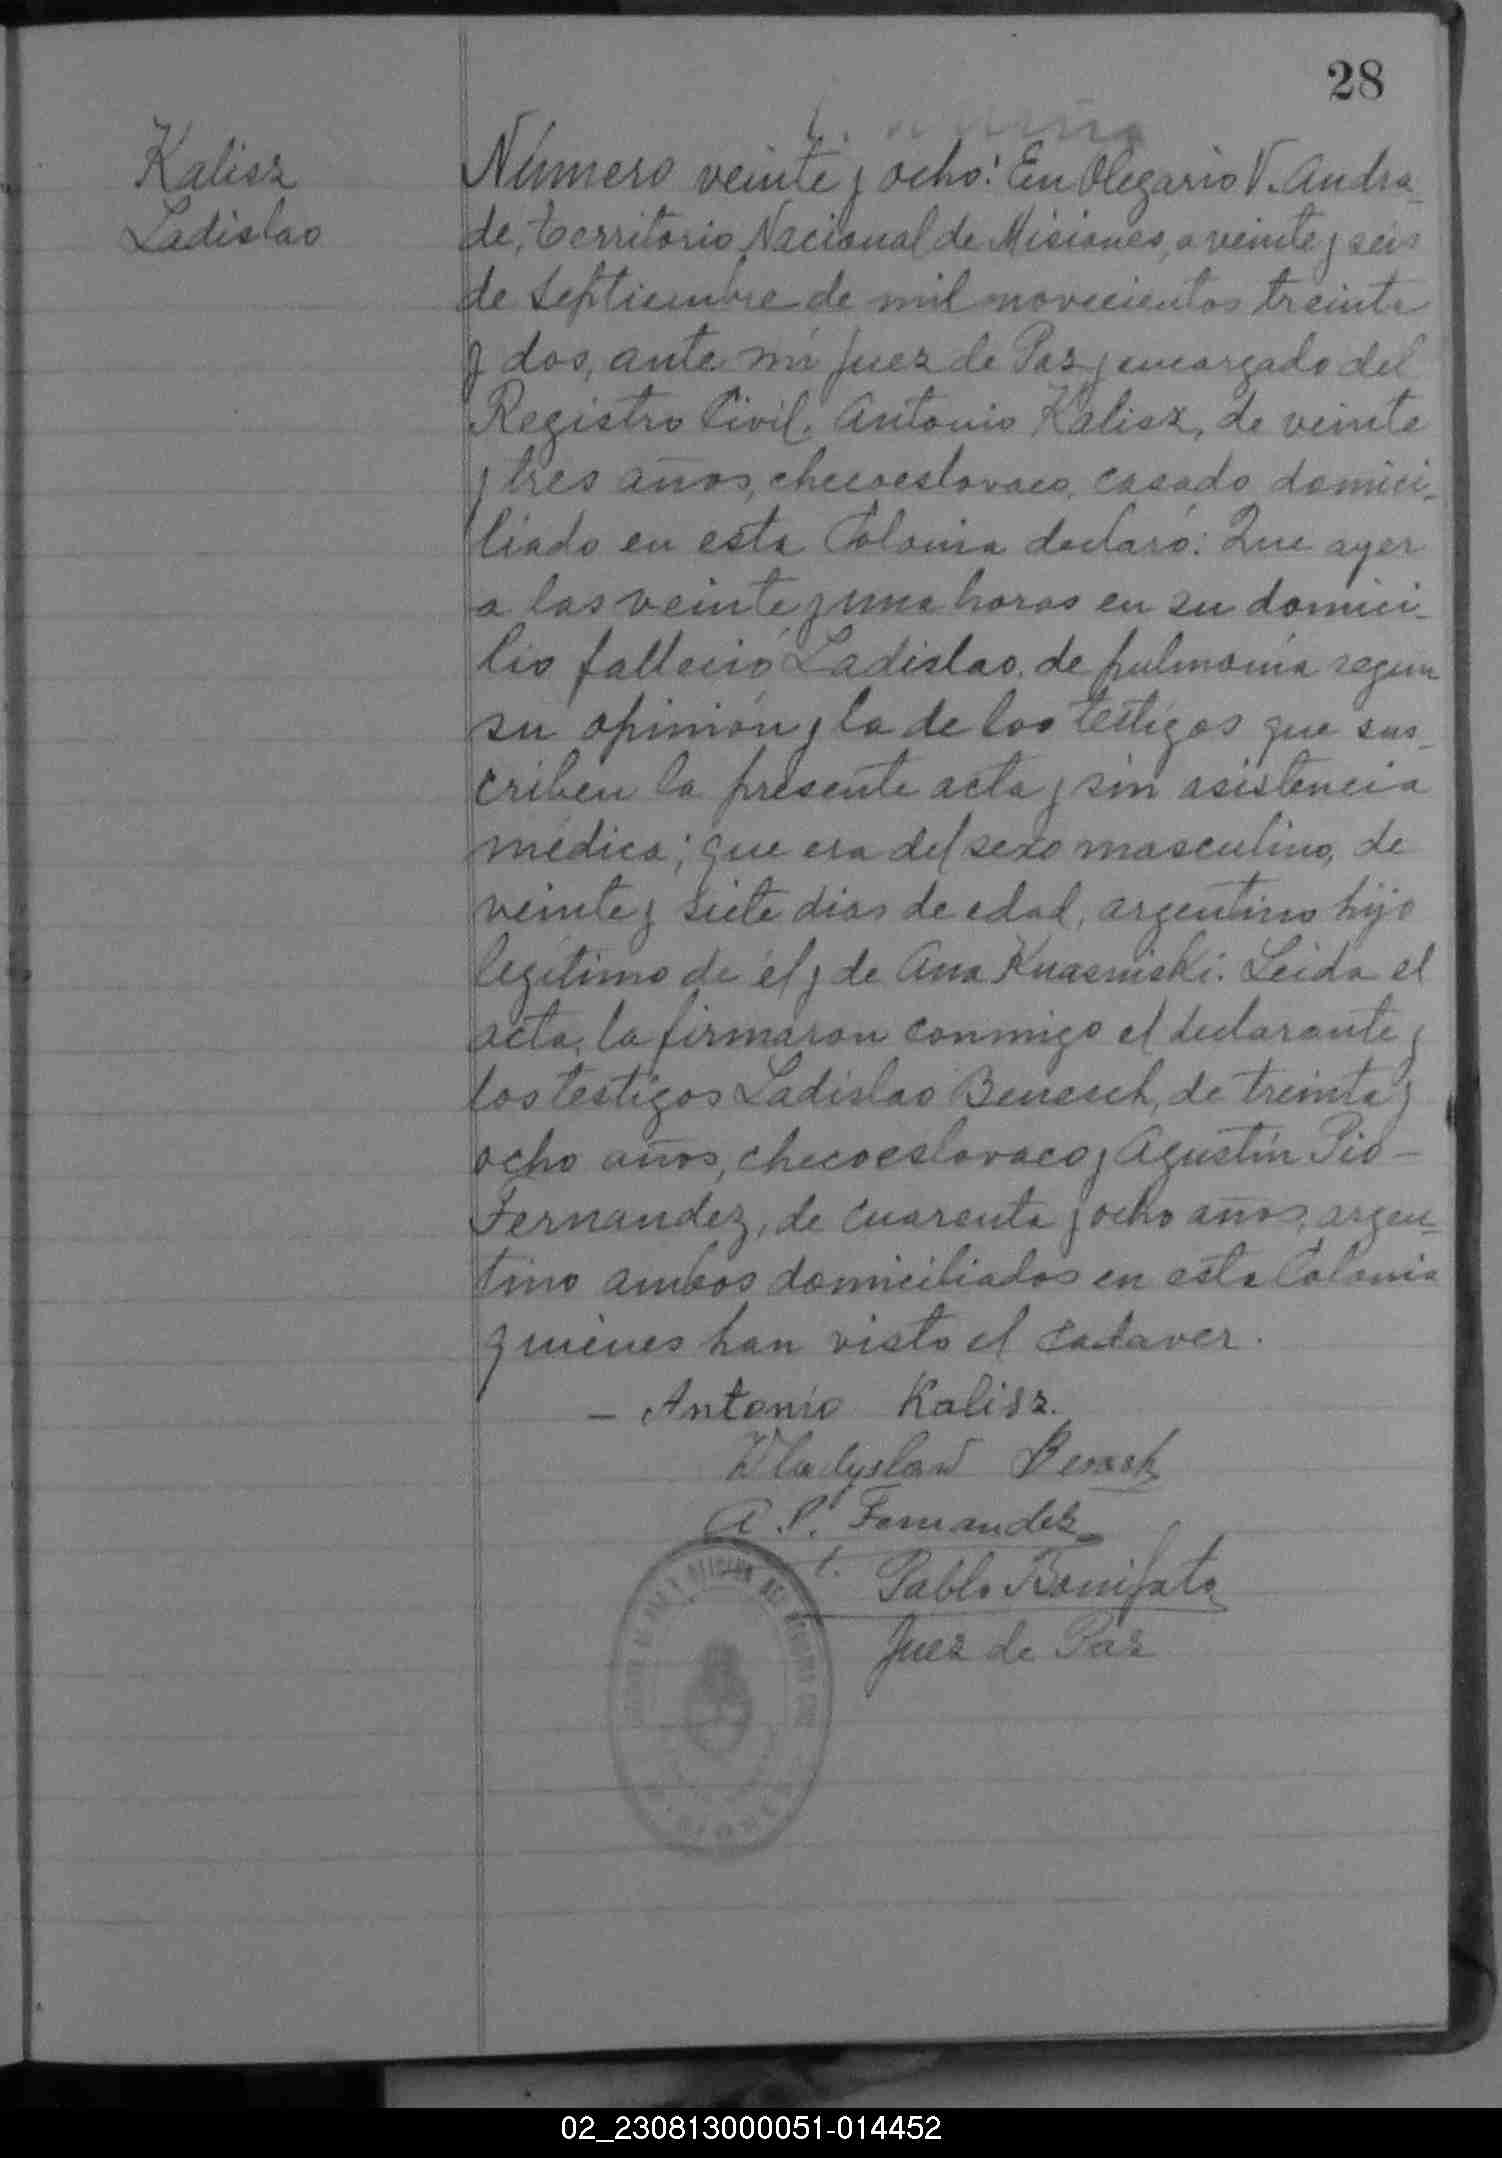 28
Kalisz
Ladislao
Número veinte y ocho: En Olegario V. Andra-
de, territorio Nacional de Misiones, a veinte y seis
de Septiembre de mil novecientos treinta
y dos, ante mi Juez de Paz y encargado del
Registro Civil, Antonio Kalisz, de veinte
y tres años, checoeslovaco, casado domici-
liado en esta Colonia declaró: Que ayer
a las veinte y una horas en su domici-
lio falleció Ladislao, de pulmonía segun
su opinión y la de los testigos que sus-
criben la presente acta y sin asistencia
médica; que era del sexo masculino, de
veinte y siete dias de edad, argentino hijo
legítimo de él y de Ana Knasniski. Leida el
acta, la firmaron conmigo el declarante y
los testigos Ladislao Benesch, de treinta y
ocho años, checoeslovaco y Agustín Pio-
Fernandez, de cuarenta y ocho años, argen-
tino ambos domiciliados en esta Colonia
quienes han visto el cadaver.
- Antonio Kalisz.
Wladyslaw
A. P. Fernandez
Pablo Bonifato
Juez de Paz
02_230813000051-014452